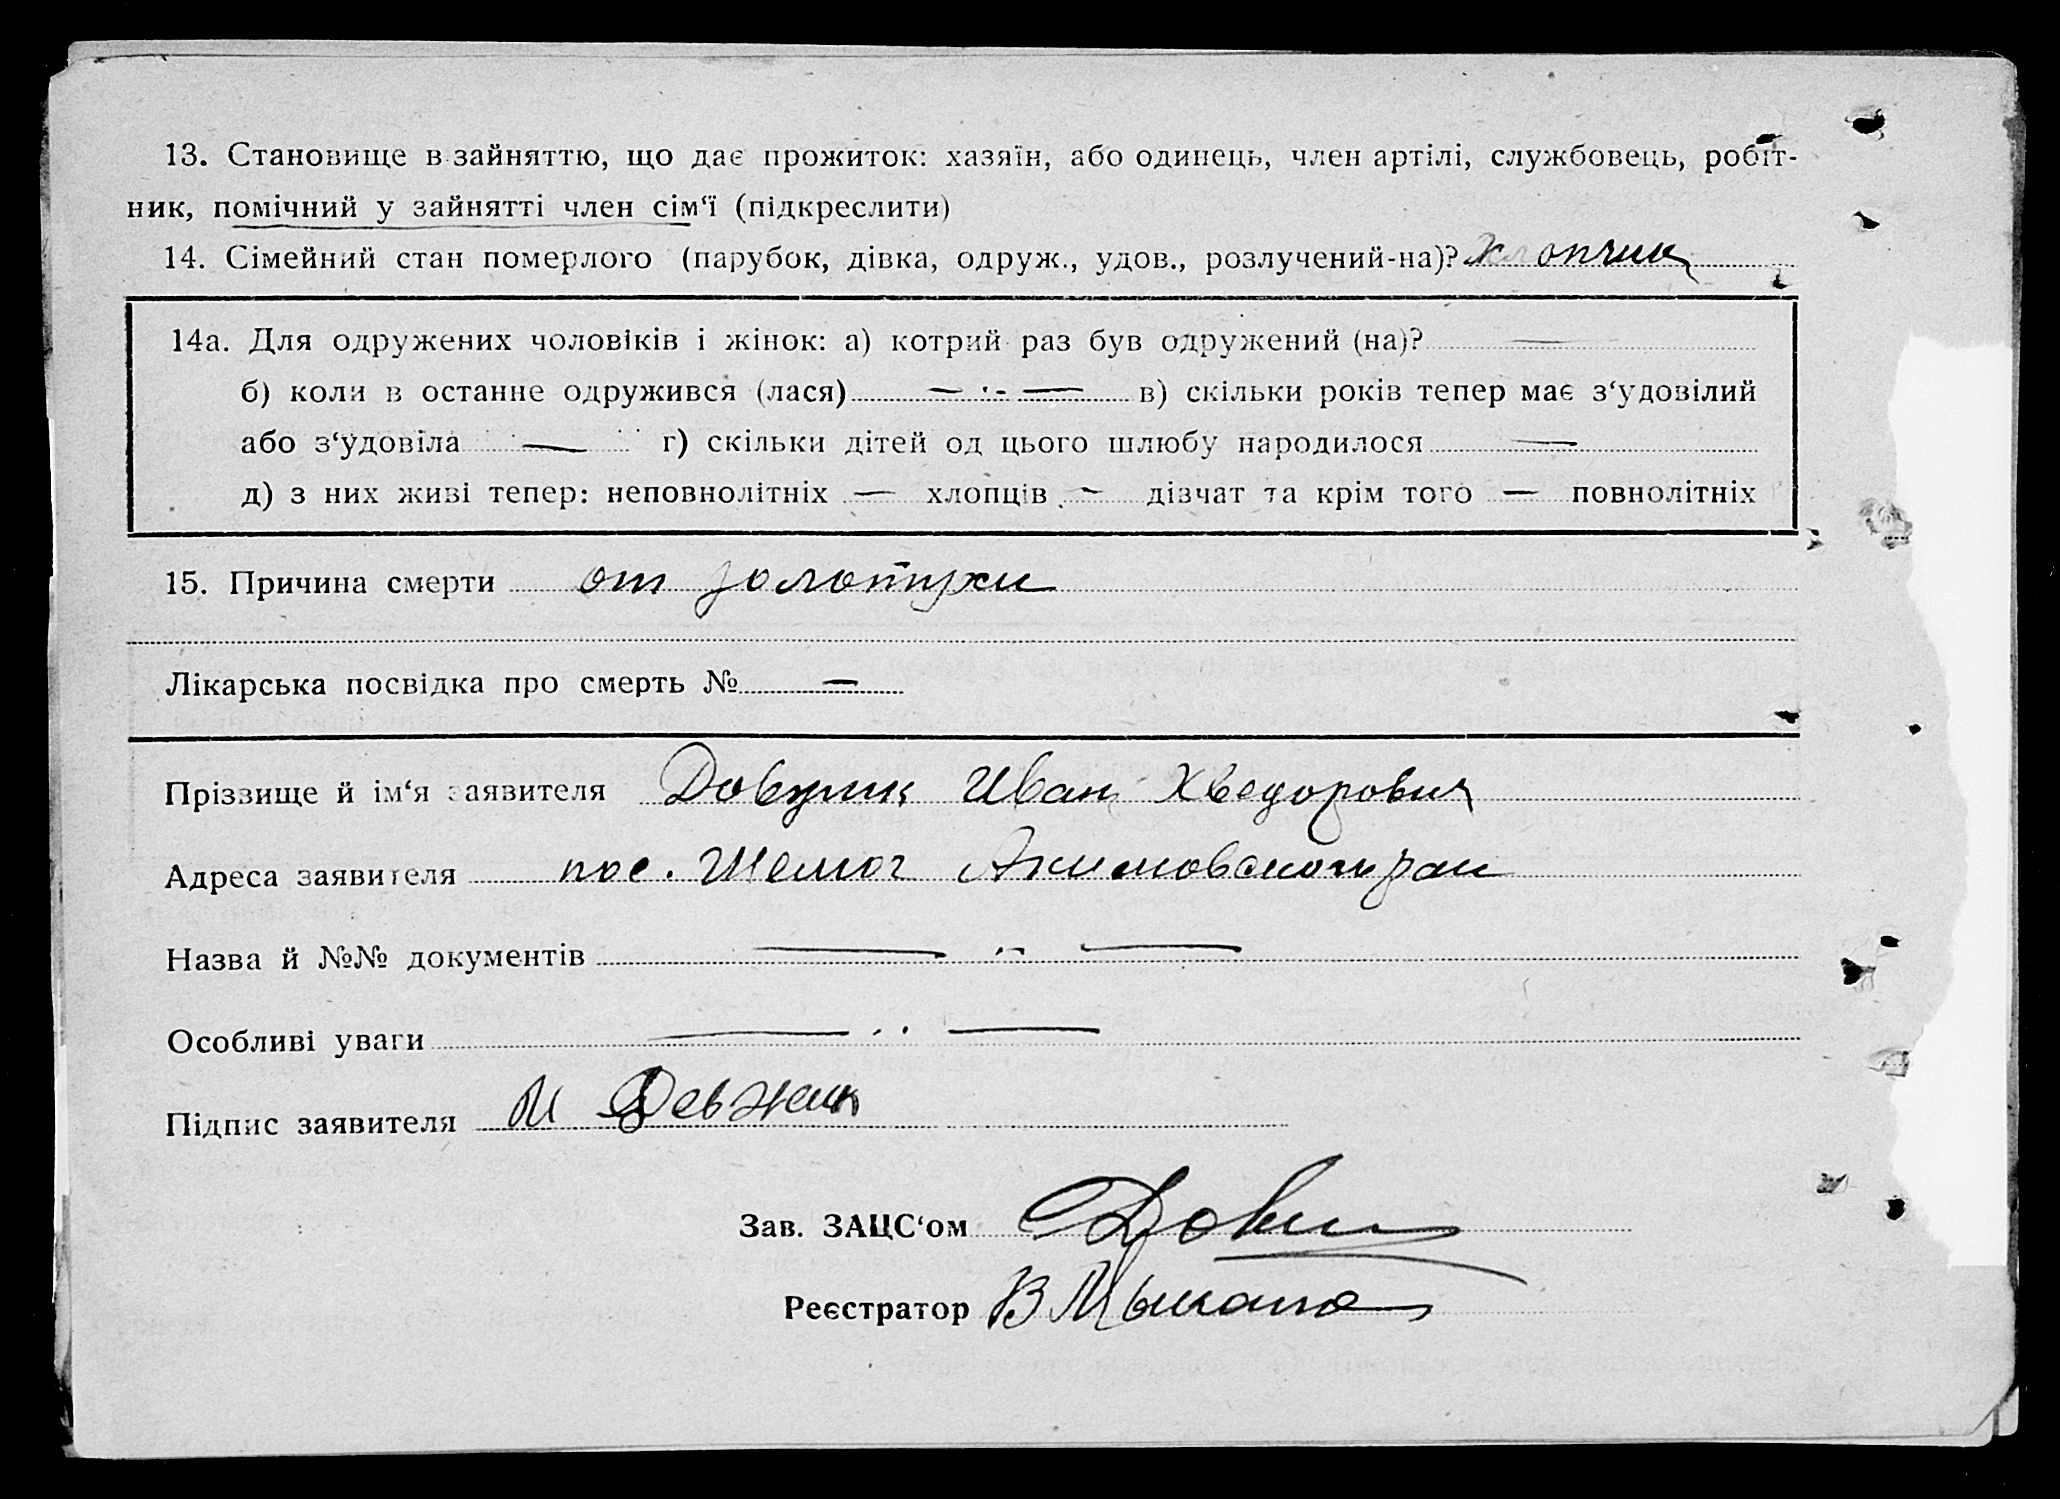 13. Становище в зайняттю, що дає прожиток: хазяїн, або одинець, член артілі, службовець, робіт-
ник, помічний у зайнятті член сім‘ї (підкреслити)
14. Сімейний стан померлого (парубок, дівка, одруж., удов., розлучений-на)? хлопчик
14а. Для одружених чоловіків і жінок: а) котрий раз був одружений (на)? —
б) коли в останнє одружився (лася) — · - — в) скільки років тепер має з‘удовілий
або з‘удовіла — г) скільки дітей од цього шлюбу народилося —
д) з них живі тепер: неповнолітніх — хлопців — дівчат та крім того — повнолітніх
15. Причина смерти от золотухи
Лікарська посвідка про смерть № —
Прізвище й ім‘я заявителя Иван Хведорович
Адреса заявителя пос. Акимовского рай
Назва й №№ документів — ·· —
Особливі уваги — ·· —
Підпис заявителя И
Зав. ЗАЦС‘ом
Реєстратор В